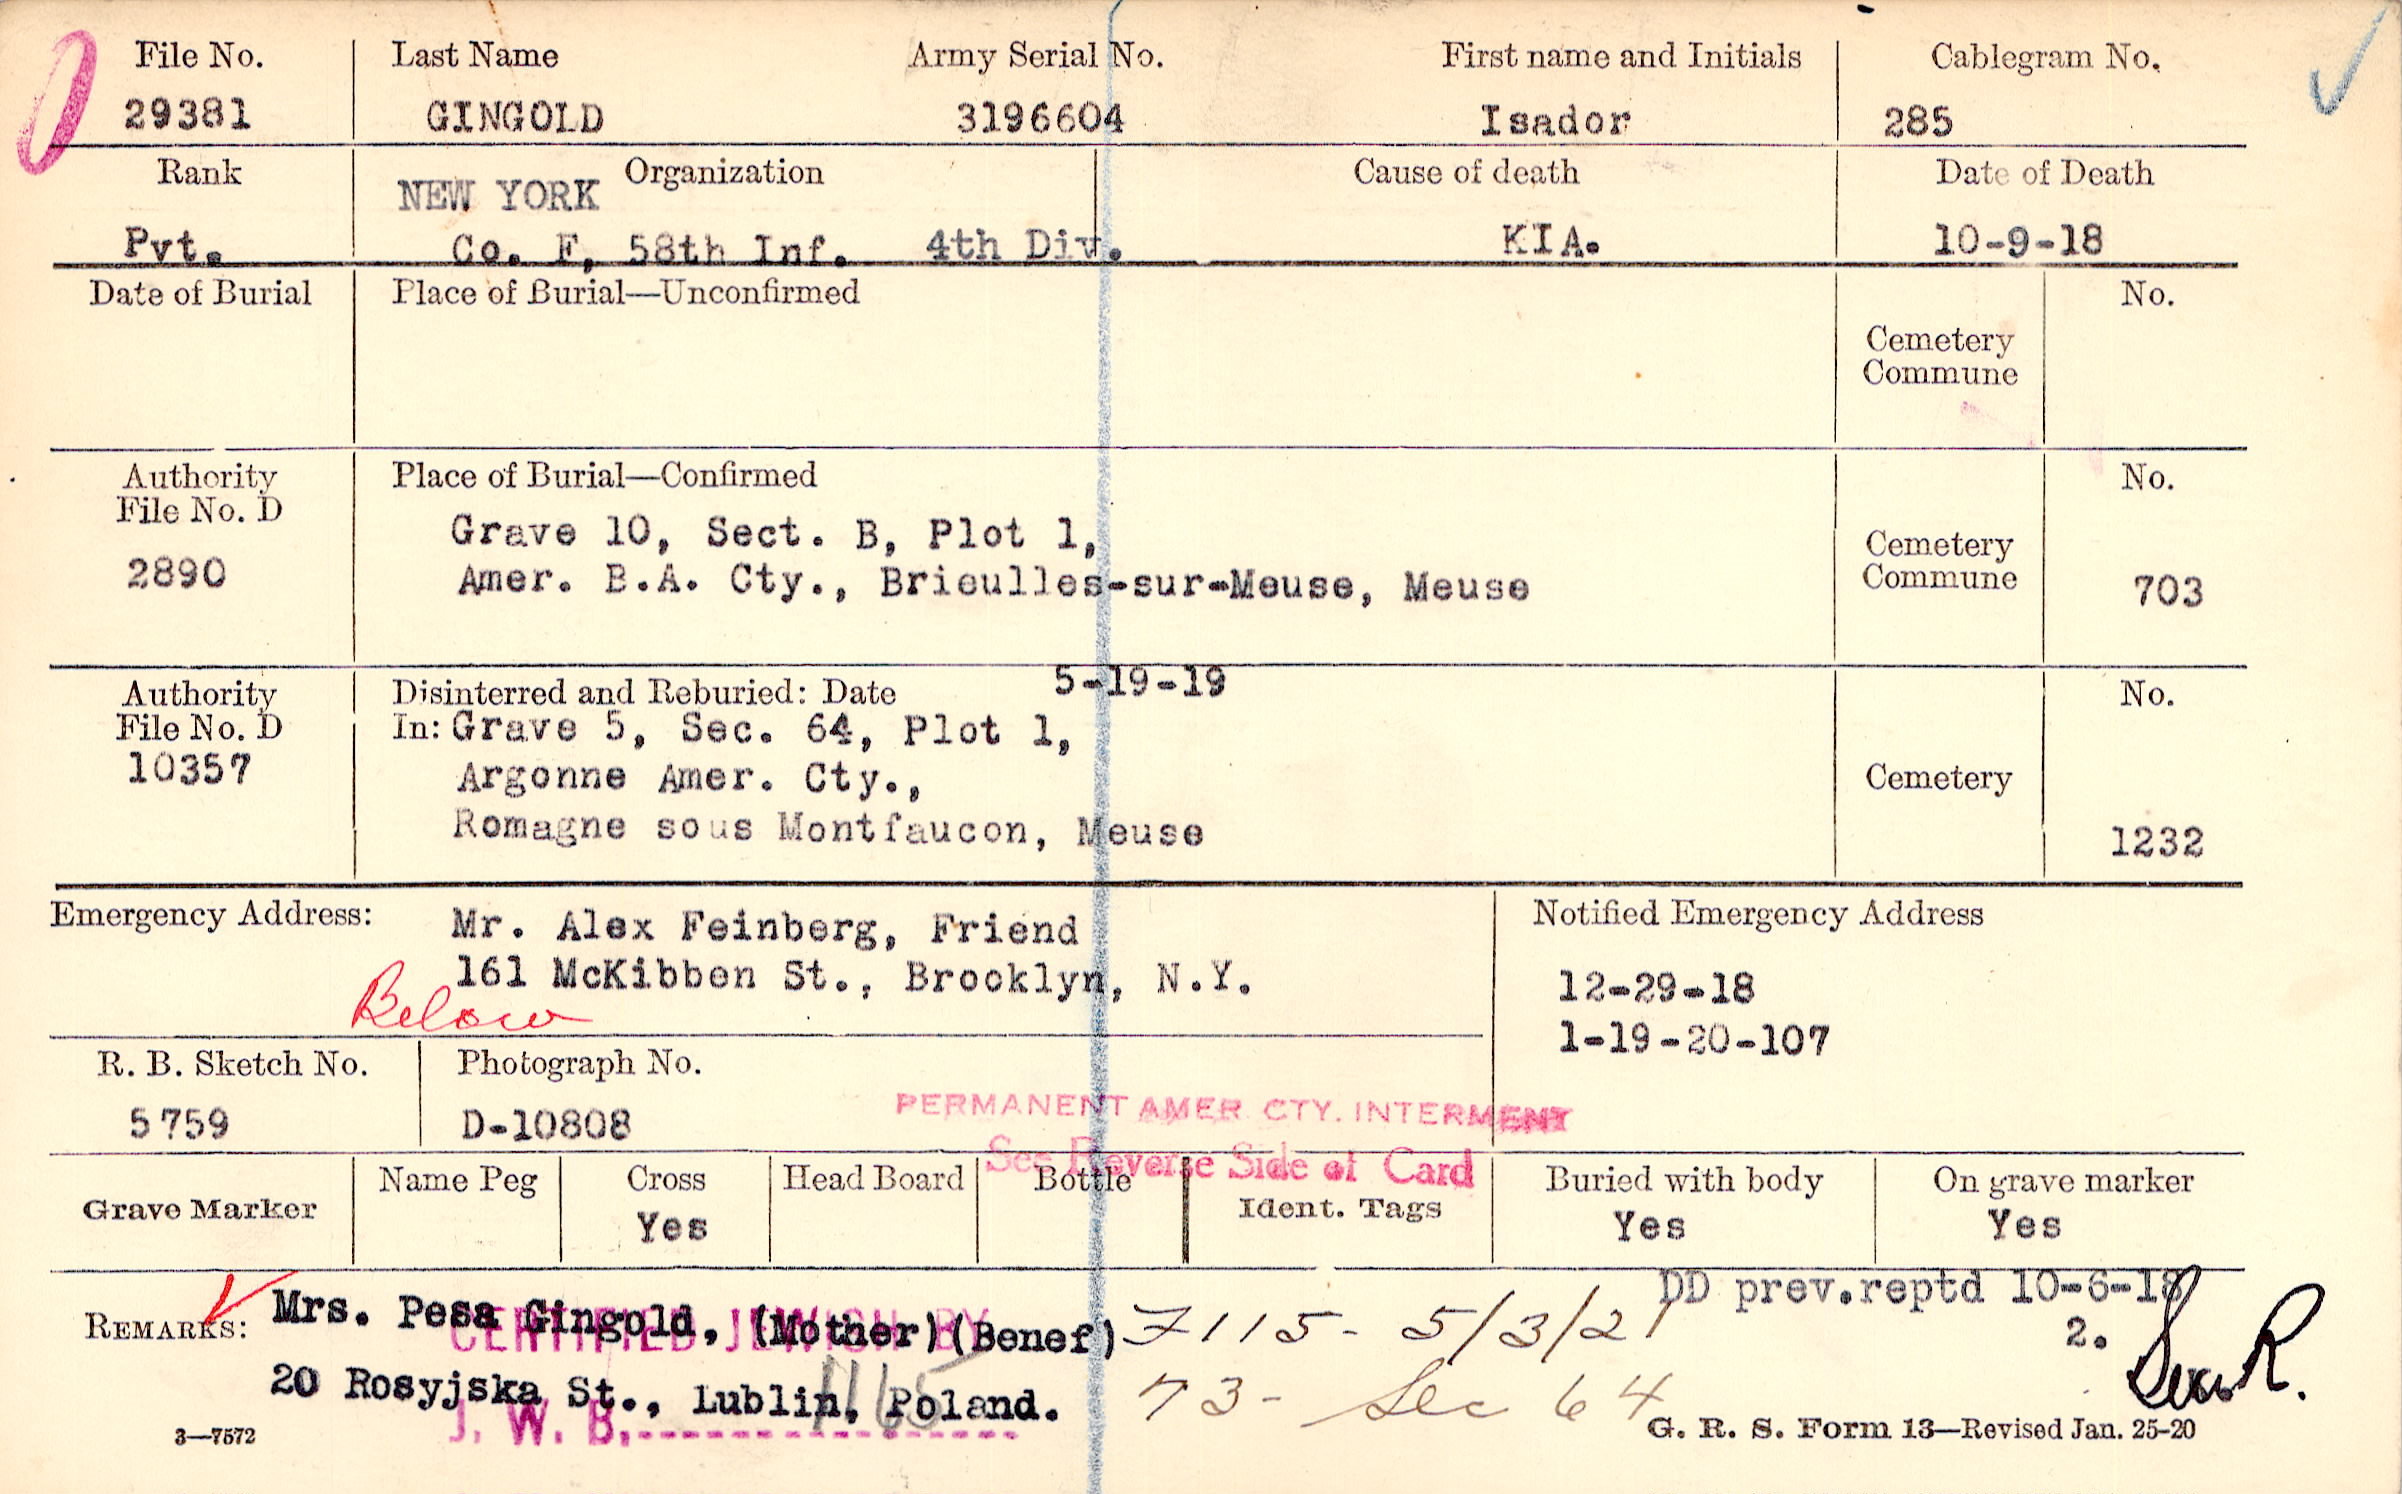 File No. Last Name Army Serial No. First name and Initials Cablegram No.
29381 GINGOLD 3196604 Isador 285
Rank Organization Cause of death Date of Death
NEW YORK
Pvt. Co. F, 58th Inf. 4th Div. KIA. 10-9-18
Date of Burial Place of Burial—Unconfirmed No.
Cemetery
Commune
Authority Place of Burial—Confirmed No.
File No. D
Grave 10, Sect. B, Plot 1,
2890 Amer. B.A. Cty., Brieulles-sur-Meuse, Meuse
Cemetery
Commune 703
Authority Disinterred and Reburied: Date 5-19-19 No.
File No. D In: Grave 5, Sec. 64, Plot 1,
10357 Argonne Amer. Cty., Cemetery
Romagne sous Montfaucon, Meuse 1232
Emergency Address: Mr. Alex Feinberg, Friend Notified Emergency Address
161 McKibben St., Brooklyn, N.Y. 12-29-18
Below
1-19-20-107
R. B. Sketch No. Photograph No.
5759 D-10808
PERMANENT AMER CTY. INTERMENT
See Reverse Side of Card
Grave Marker Name Peg Cross Head Board Bottle Ident. Tags Buried with body On grave marker
Yes Yes Yes
DD prev.reptd 10-6-18
REMARKS: Mrs. Pesa Gingold, (Mother)(Benef) 7115- 5/3/21 2.
CERTIFIED JEWISH BY
20 Rosyjska St., Lublin, Poland. 73- Sec 64
J. W. B.
3—7572 G. R. S. Form 13—Revised Jan. 25-20